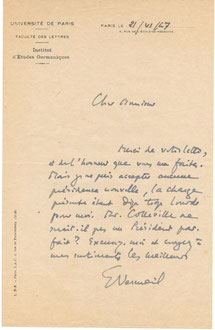 UNIVERSITÉ DE PARIS
FACULTÉ DES LETTRES
Institut
d'Études Germaniques
PARIS LE 21/VI/47
5, RUE DE L'ÉCOLE-DE-MÉDECINE
Cher Monsieur
Merci de votre lettre,
et de l'honneur que vous me faites.
Mais je ne puis accepter aucune
présidence nouvelle, la charge
présente étant déjà trop lourde
pour moi. Mr. Colleville ne
serait-il pas un Président par-
fait? Excusez-moi et croyez à
mes sentiments les meilleurs
E Vermeil